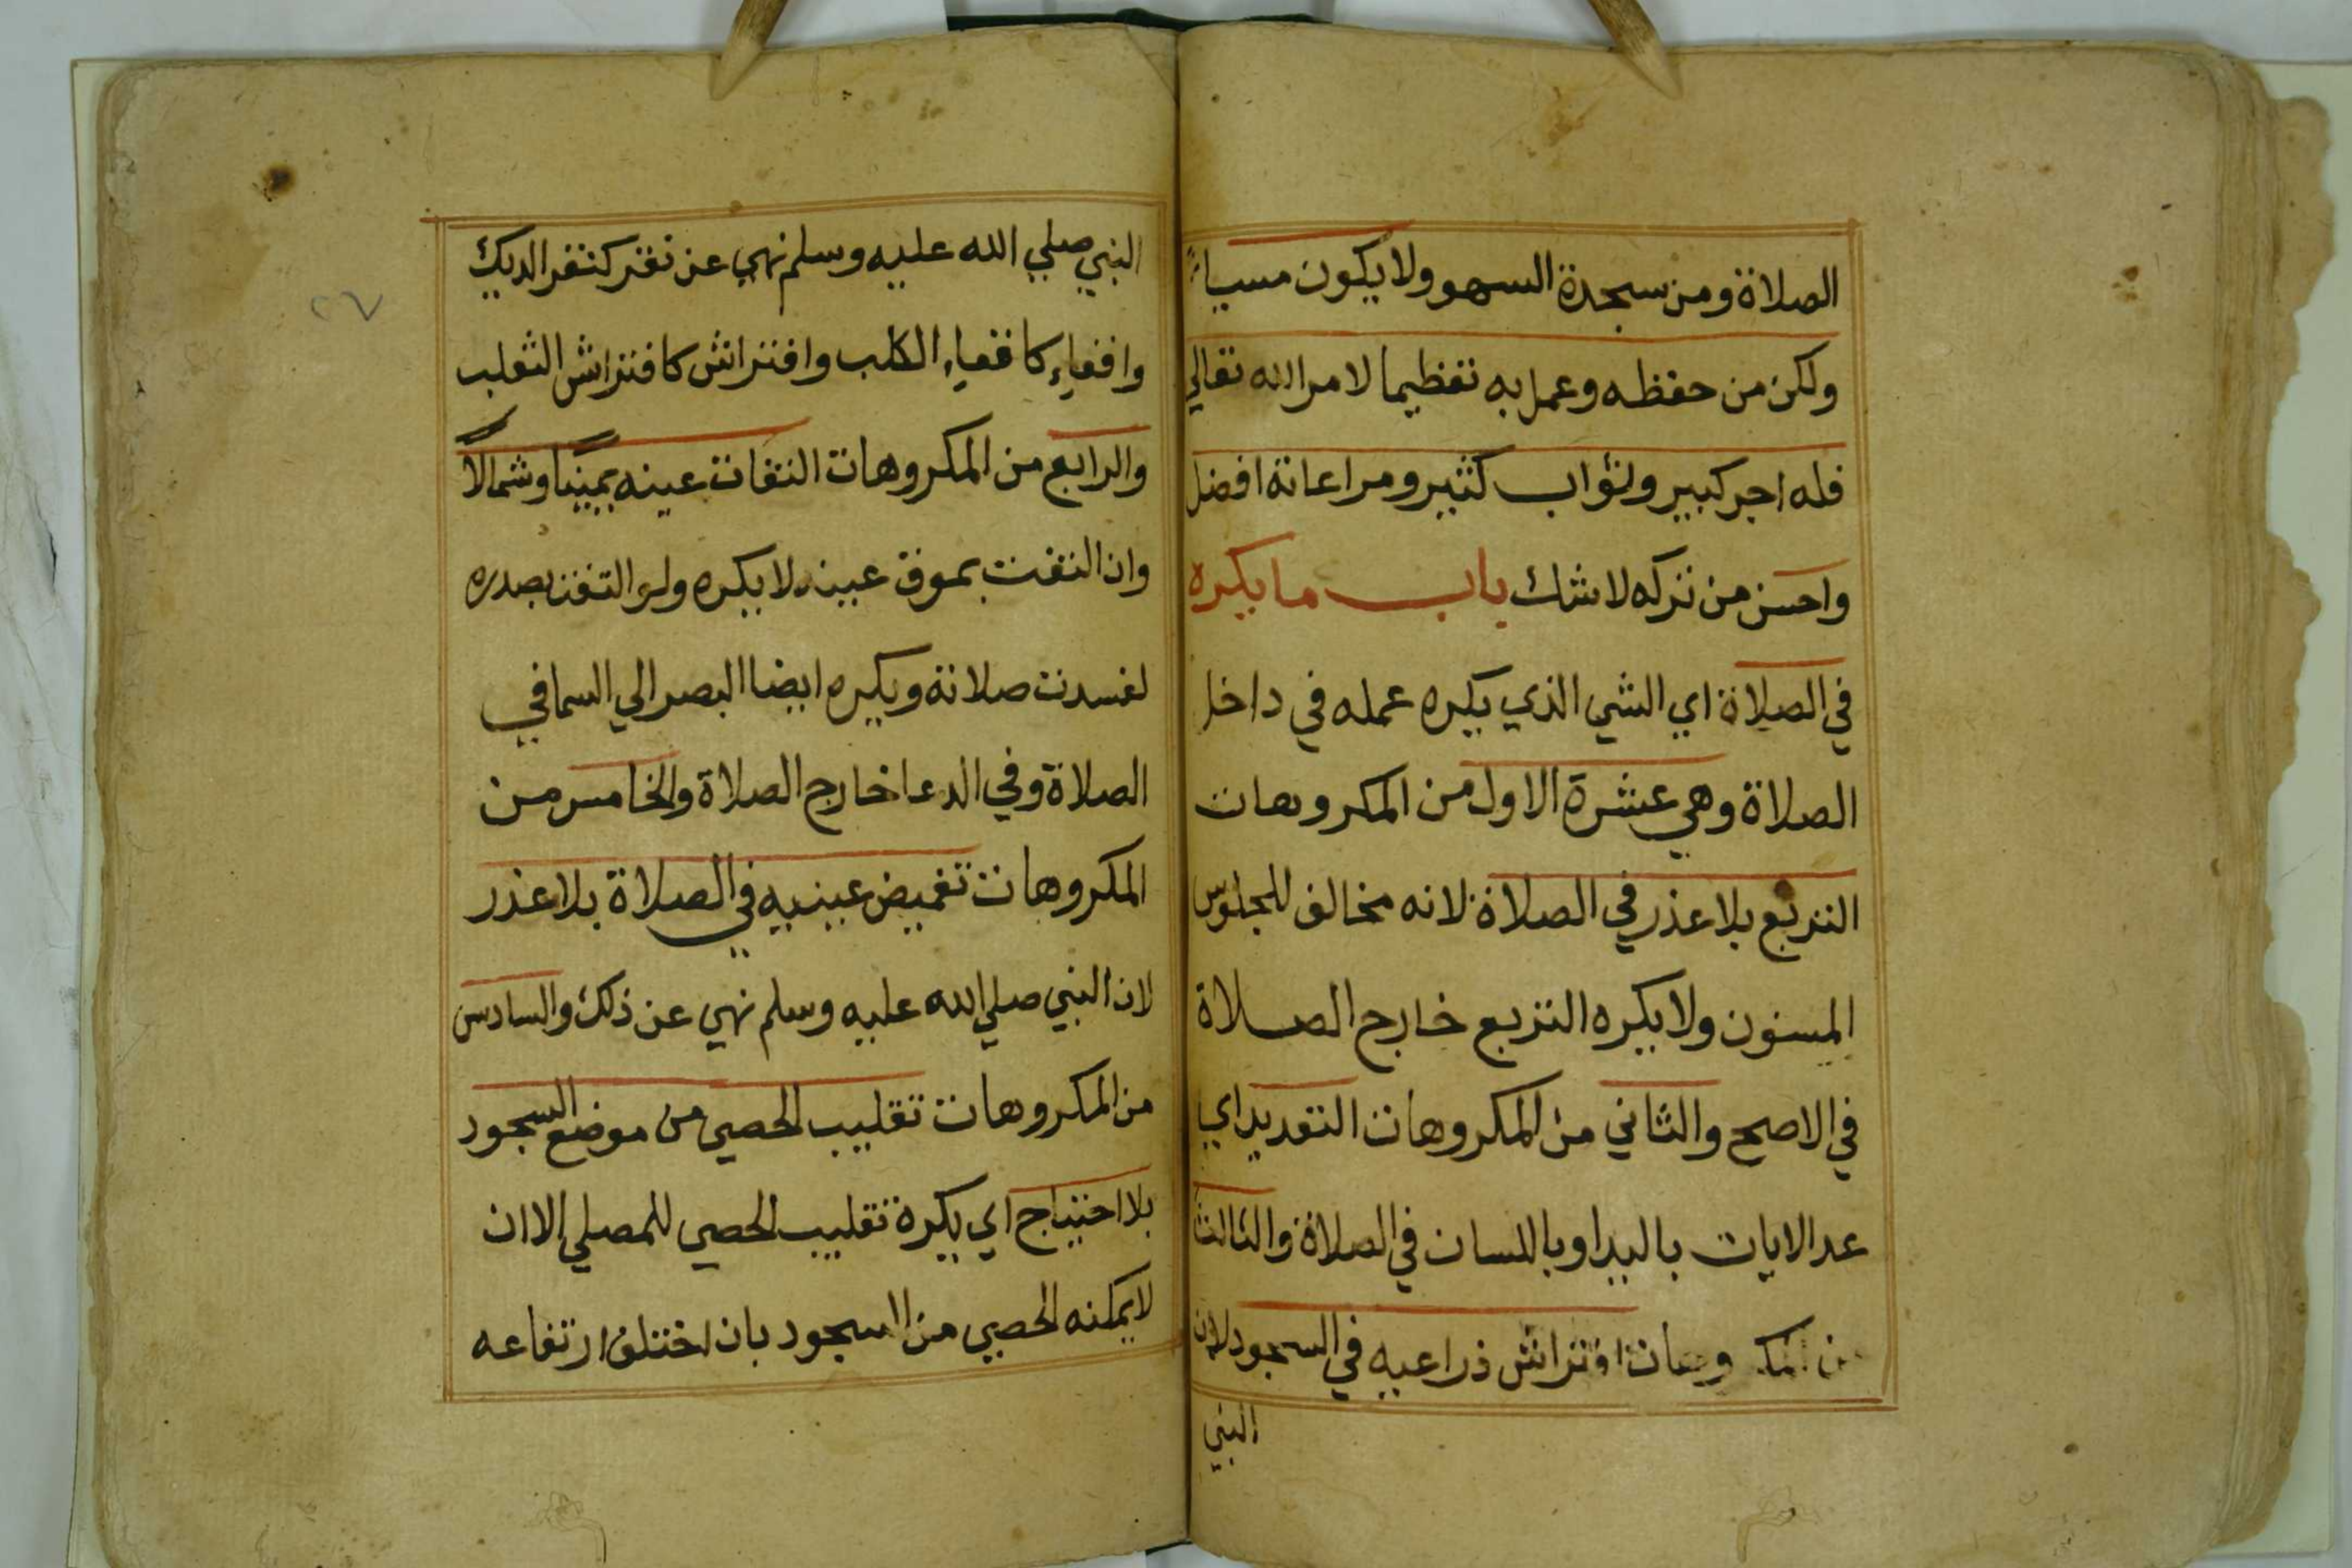 الصلاة ومن سجدة السهو ولا يكون مسيأ
ولكن من حفظه وعمل به تعظيما لامر الله تعالي
فله اجر كبير وثواب كثير ومراعاتة افضل
واحسن من تركه لا شك باب ما يكره
في الصلاة اي الشي الذي يكره عمله في داخل
الصلاة وهي عشرة الاول من المكروهات
التربع بلا عذر في الصلاة لانه مخالف للجلوس
المسنون ولا يكره التربع خارج الصلاة
في الاصح والثاني من المكروهات التعديد اي
عد الايات باليد او باللسان في الصلاة والثالث
من المكروهات افتراش ذراعيه في السجود لان
النبي
٢٧
النبي صلي الله عليه وسلم نهي عن نقر كنقر الديك
واقعاء كاقعاء الكلب وافتراش كافتراش الثعلب
والرابع من المكروهات التفات عينه يمينا وشمالا
وان التفت بموق عينه لا يكره ولو التفت بصدره
لفسدت صلاتة ويكره ايضا البصر الي السما في
الصلاة وفي الدعا خارج الصلاة والخامس من
المكروهات تغميض عينيه في الصلاة بلا عذر
لان النبي صلي الله عليه وسلم نهي عن ذلك والسادس
من المكروهات تقليب الحصي من موضع السجود
بلا احتياج اي يكره تقليب الحصي للمصلي الا ان
لا يمكنه الحصي من السجود بان اختلف ارتفاعه